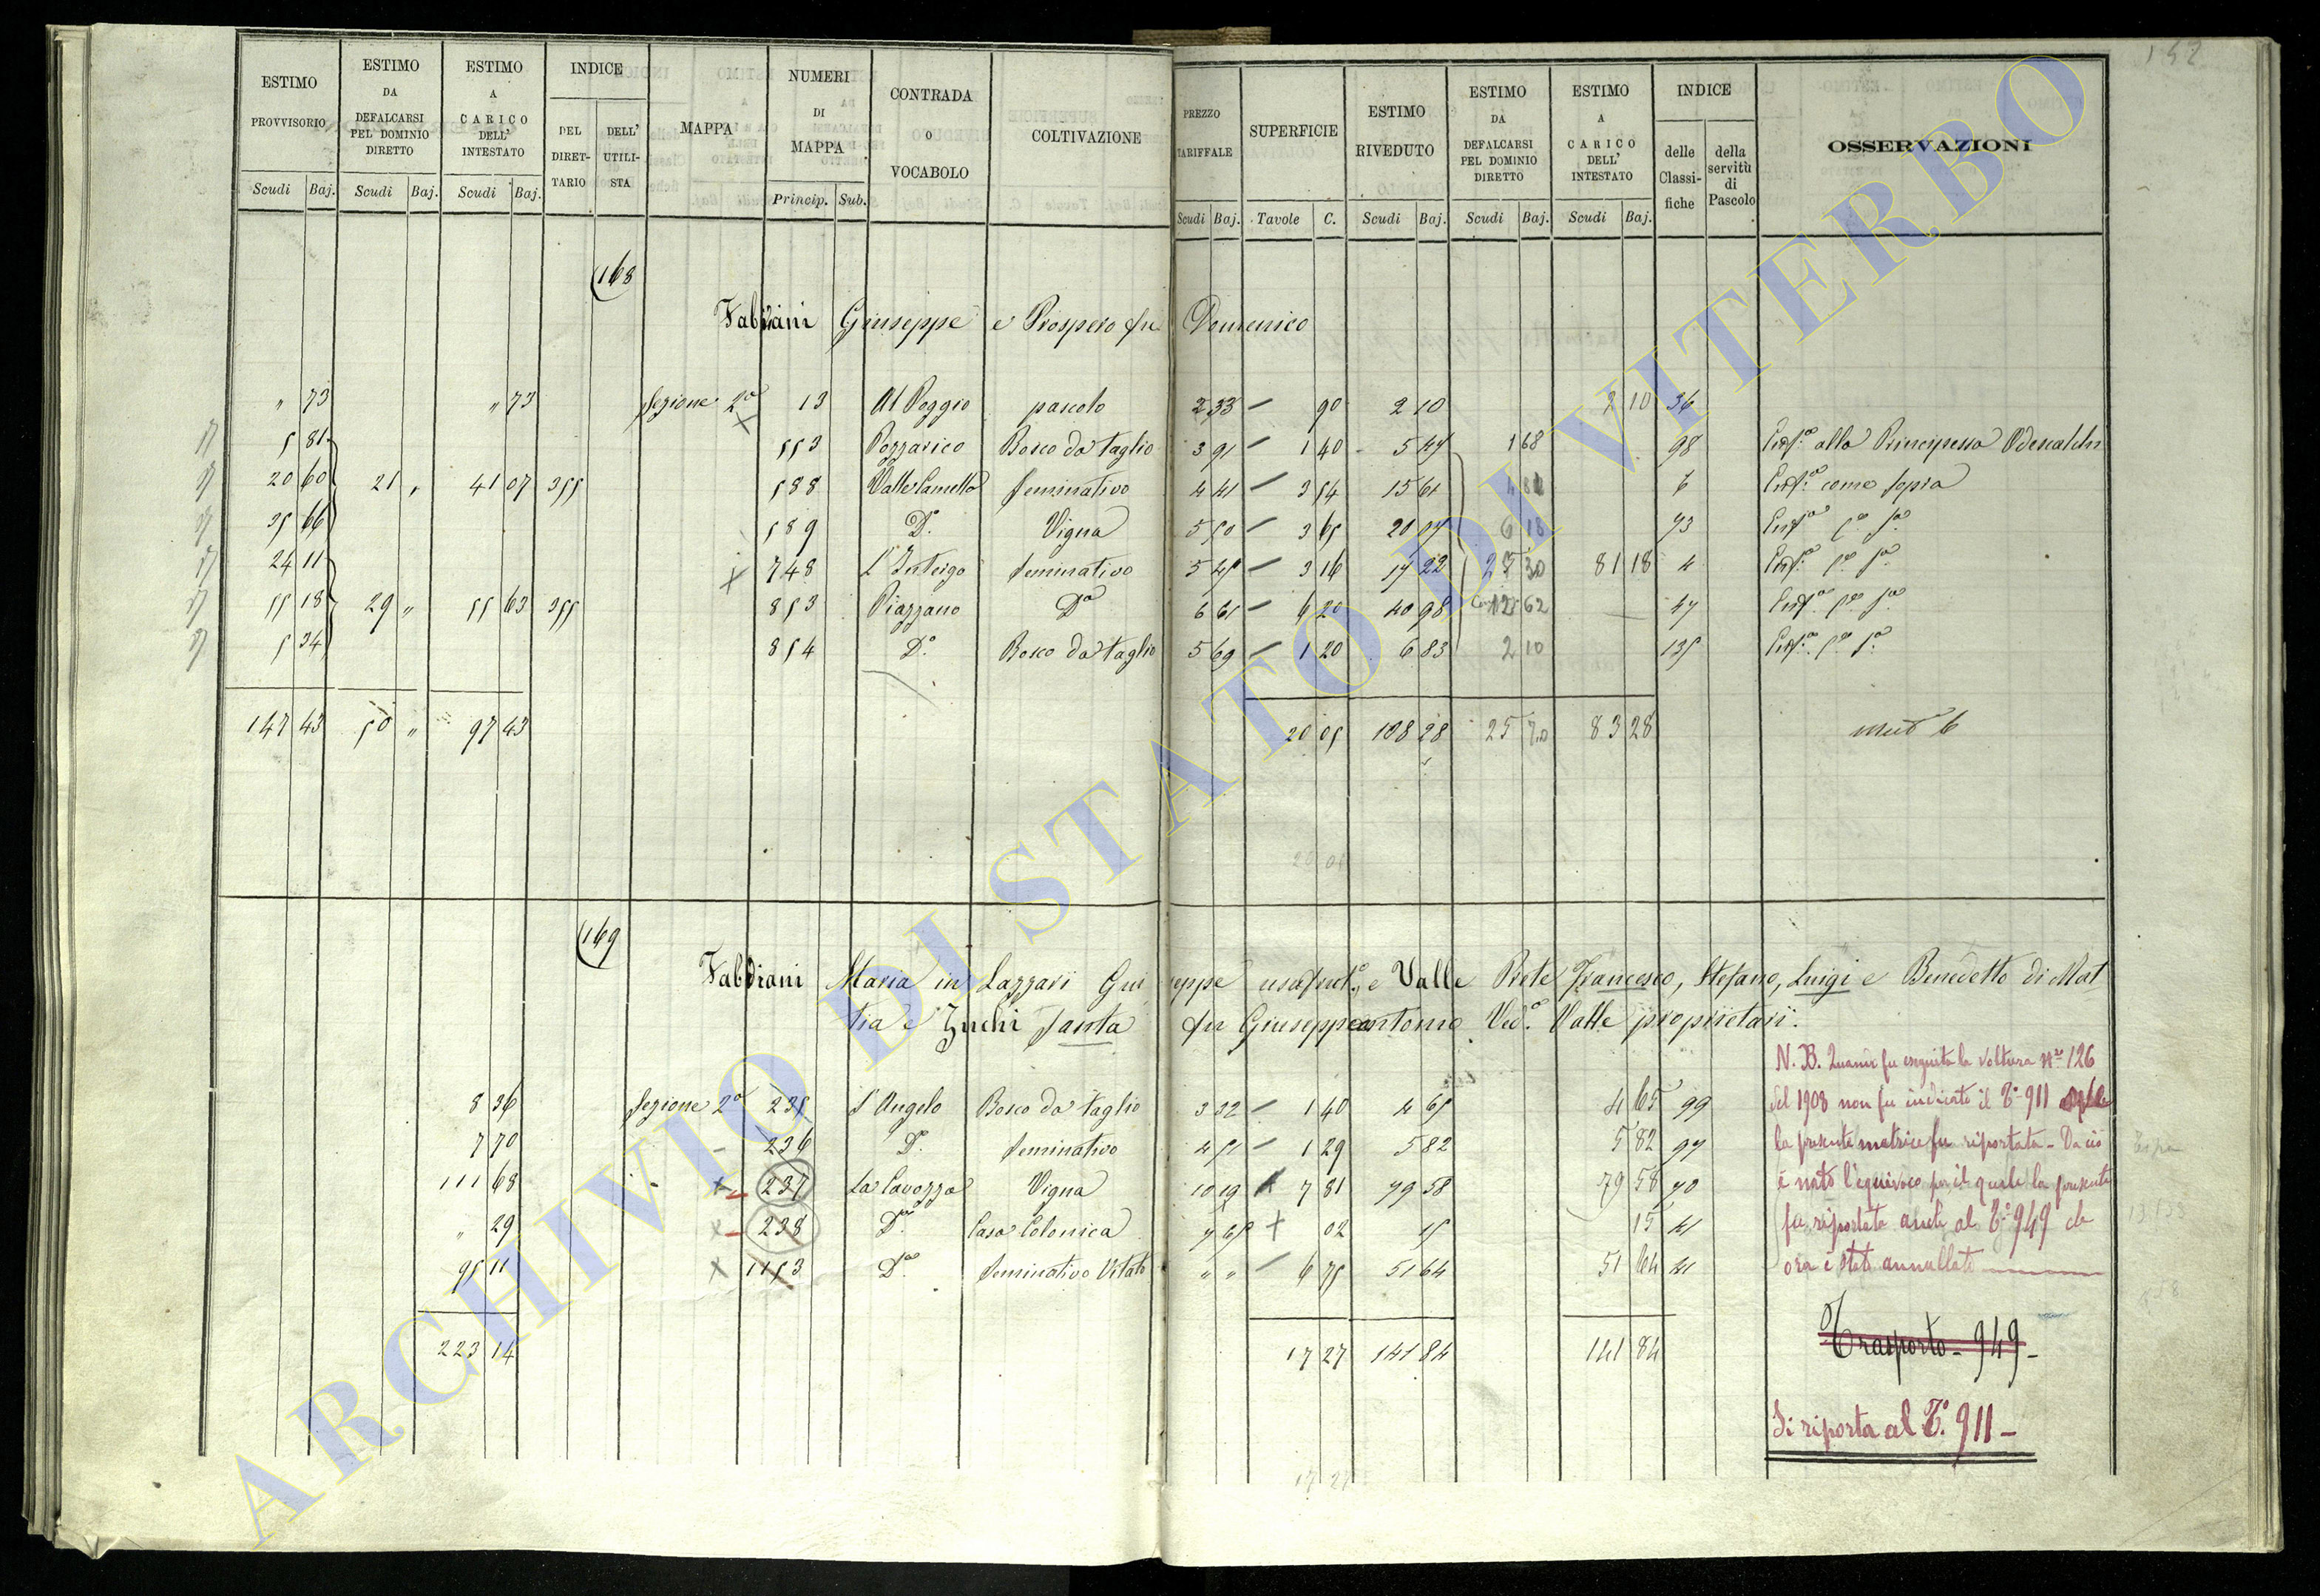 152
ESTIMO PROVVISORIO | ESTIMO DA DEFALCARSI PEL DOMINIO DIRETTO | ESTIMO A CARICO DELL' INTESTATO | INDICE DEL DIRETTARIO | DELL' UTILISTA | MAPPA | NUMERI DI MAPPA | CONTRADA O VOCABOLO | COLTIVAZIONE | PREZZO TARIFFALE | SUPERFICIE | ESTIMO RIVEDUTO | ESTIMO DA DEFALCARSI PEL DOMINIO DIRETTO | ESTIMO A CARICO DELL' INTESTATO | INDICE delle Classifiche | della servitù di Pascolo | OSSERVAZIONI
Scudi Baj. | Scudi Baj. | Scudi Baj. | Princip. Sub. | Scudi Baj. | Tavole C. | Scudi Baj. | Scudi Baj. | Scudi Baj.
168
Fabriani Giuseppe e Prospero fu Domenico
" 73 " 73 Sezione 2a 13 Al Poggio pascolo 2 33 – 90 2 10 2 10 36
5 81 553 Pozzarico Bosco da taglio 3 91 – 1 40 5 47 1 68 98 Enf.a alla Principessa Odescalchi
20 60 21 " 41 07 355 588 Valle Camella Seminativo 4 41 – 3 54 15 61 6 Enf.a come sopra
35 66 589 D.o Vigna 5 50 – 3 65 20 07 6 18 73 Enf.a c.e s.a
24 11 748 Seminativo 5 45 – 3 16 17 22 81 18 4 Enf.a c.e s.a
55 18 29 " 55 63 355 853 Piazzano D.o 6 61 – 6 20 40 98 12 62 47 Enf.a c.e s.a
5 34 854 D.o Bosco da taglio 5 69 – 1 20 6 83 2 10 135 Enf.a c.e s.a
147 43 50 " 97 43 20 05 108 28 25 70 83 28
20 05
169
Fabbiani Maria in Lazzari Giuseppe usufrut.a, e Valle Prete Francesco, Stefano, Luigi e Benedetto di Mat
tia e Zuchi Santa fu Giuseppeantonio Ved.a Valle proprietari.
8 36 Sezione 2a 235 S Angelo Bosco da taglio 3 32 – 1 40 4 65 4 65 99
7 70 236 D.o Seminativo 4 51 – 1 29 5 82 5 82 97
111 68 237 La Cavozza Vigna 10 19 7 81 79 58 79 58 70
" 29 238 D.o Casa Colonica 7 65 + 02 15 15 41
95 11 1153 D.o Seminativo Vitato " " – 6 75 51 64 51 64 41
223 14 17 27 141 84 141 84
N. B. Quando fu eseguita la Voltura N.o 126
del 1908 non fu indicato il T.o 911
la presente matrice fu riportata – Da ciò
è nato l'equivoco per il quale la presente
fu riportata anche al T.o 949 che
ora è stato annullato
Trasporto – 949 –
Si riporta al T.o 911 –
17 27
ARCHIVIO DI STATO DI VITERBO